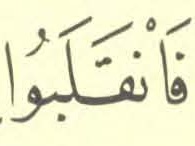 فَانْقَلَبُوا